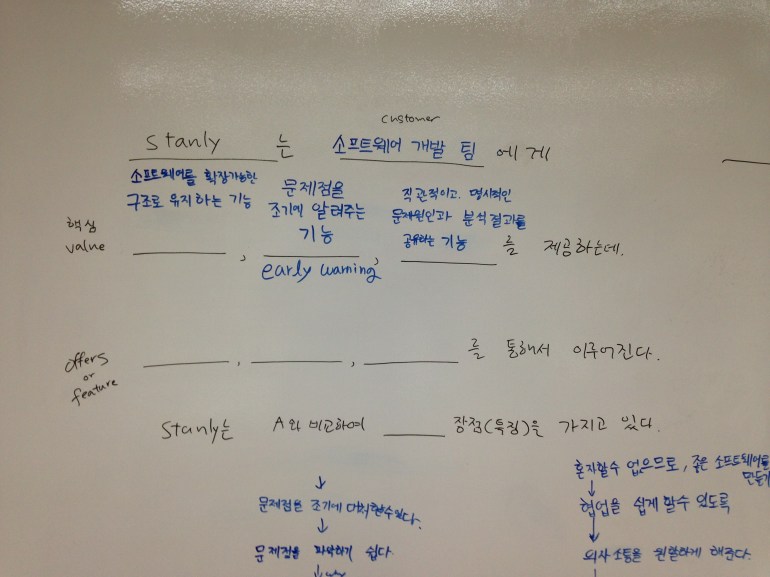 customer
Stanly 는 소프트웨어 개발 팀 에게
소프트웨어를 확장가능한
구조로 유지하는 기능
문제점을
조기에 알려주는
기능
early warning
직관적이고, 명시적인
문제원인과 분석결과를
공유하는 기능
핵심
value
, , 를 제공하는데,
offers
or
feature
, , 를 통해서 이루어진다.
Stanly는 A와 비교하여 장점(특징)을 가지고 있다.
↓
문제점을 조기에 대처할수있다.
↓
문제점을 파악하기 쉽다
↓
혼자할수 없으므로, 좋은 소프트웨어를
만들기
↓
협업을 쉽게 할수 있도록
↓
의사소통을 원할하게 해준다.